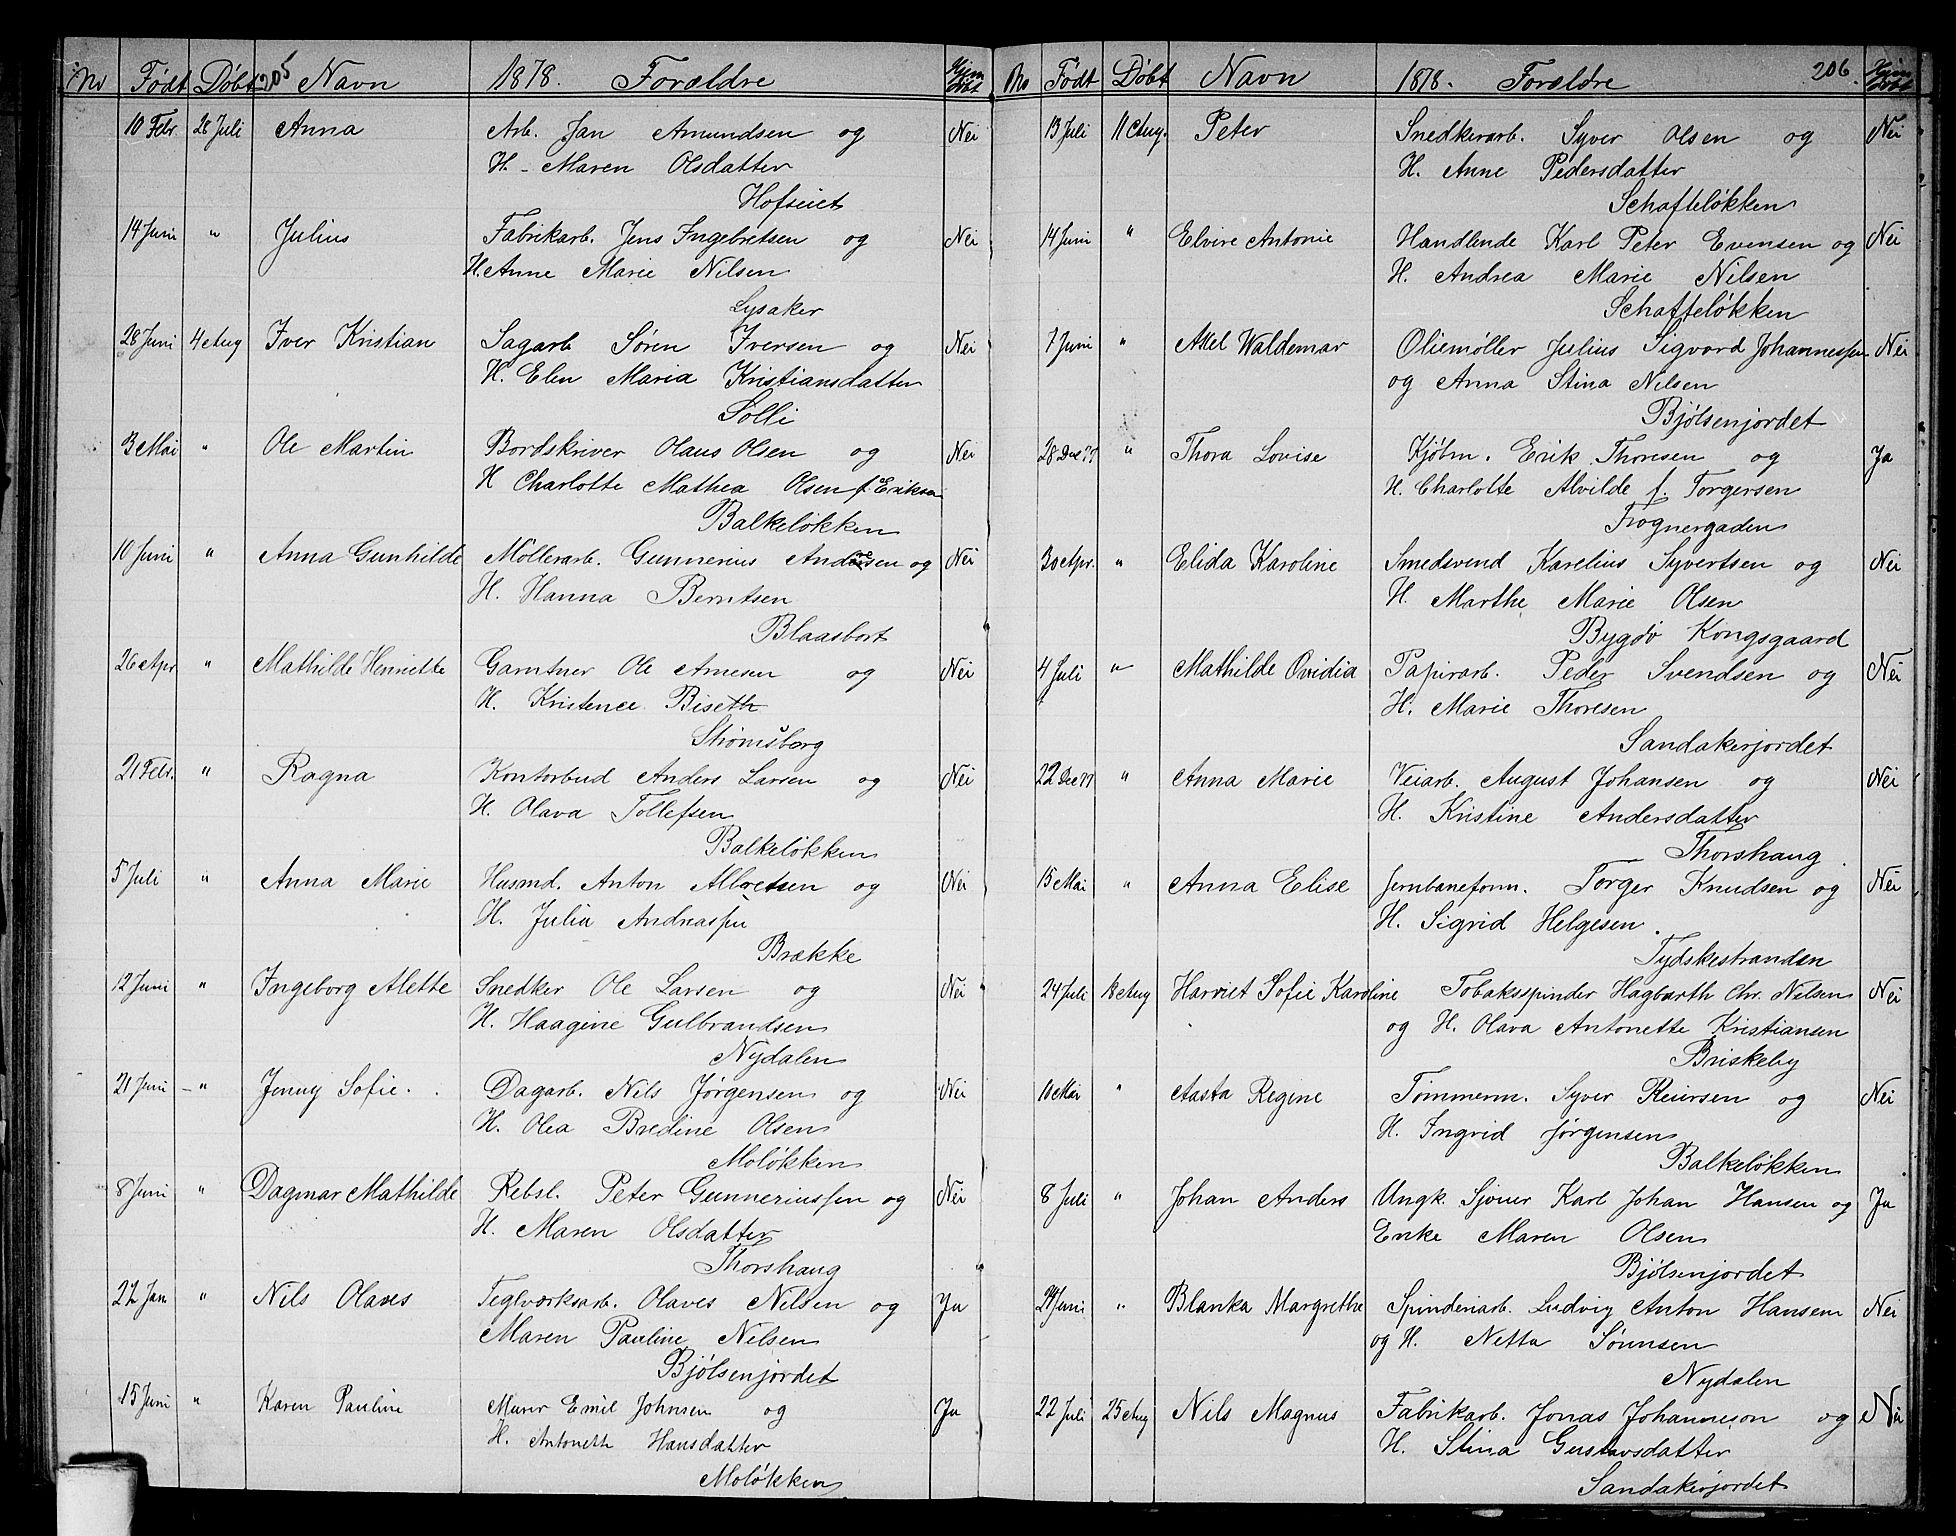 No Født Døbt 205 Navn 1878. Forældre Hjem døbt
10 Febr 28 Juli Anna Arb. Jan Amundsen og Nei
H. - Maren Olsdatter
Hofseiet
14 Juni " Julius Fabrikarb. Jens Ingebretsen og Nei
H. Anne Marie Nilsen
Lysaker
28 Juni 4 Aug Iver Kristian Sagarb Søren Iversen og Nei
H. Elen Maria Kristiansdatter
Solli
3 Mai " Ole Martin Bordskriver Olaus Olsen og Nei
H Charlotte Mathea Olsen f. Eriksen
Balkeløkken
10 Juni " Anna Gunhilde Møllerarb. Gunnerius Andersen og Nei
H. Hanna Berntsen
Blaasbort
26 Apr " Mathilde Henriette Gartner Ole Arnesen og Nei
H. Kristence Biseth
Strømsborg
21 Febr. " Ragna Kontorbud Anders Larsen og Nei
H. Olava Tollefsen
Balkeløkken
5 Juli " Anna Marie Husmd. Anton Albretsen og Nei
H. Julia Andreassen
Brække
12 Juni " Ingeborg Alette Snedker Ole Larsen og Nei
H. Haagine Gulbrandsen
Nydalen
21 Juni - " Jenny Sofie. Dagarb. Nils Jørgensen og Nei
H. Olea Bredine Olsen
Moløkken
8 Juni " Dagmar Mathilde Rebsl. Peter Gunneriussen og Nei
H. Maren Olsdatter
Thorshaug
22 Jan " Nils Olaves Teglværksarb. Olaves Nilsen og Ja
Maren Pauline Nilsen
Bjølsenjordet
15 Juni " Karen Pauline Murer Emil Johnsen og Ja
H. Antonette Hansdatter
Moløkken
No Født Døbt Navn 1878. Forældre 206. Hjem døbt
13 Juli 11 Aug. Peter Snedkerarb. Syver Olsen og Nei
H. Anne Pedersdatter
Schafteløkken
14 Juni " Elvire Antonie Handlende Karl Peter Evensen og Nei
H. Andrea Marie Nilsen
Schafteløkken
7 Juni " Axel Waldemar Oliemøller Julius Sigvard Johannessen Nei
og Anna Stina Nilsen
Bjølsenjordet
28 Dec 77 " Thora Lovise Kjøbm. Erik Thoresen og Ja
H. Charlotte Alvilde f. Torgersen
Frognergaden
30 Apr. " Elida Karoline Smedsvend Karelius Syvertsen og Nei
H. Marthe Marie Olsen
Bygdø Kongsgaard
4 Juli " Mathilde Ovidia Papirarb. Peder Svendsen og Nei
H. Marie Thoresen
Sandakerjordet
22 Dec 77 " Anna Marie Veiarb. August Johansen og Nei
H. Kristine Andersdatter
Thorshaug.
15 Mai " Anna Elise Jernbaneform. Torger Knudsen og Nei
H. Sigrid Helgesen.
Tydskestranden
24 Juli 18 Aug Harriet Sofie Karoline Tobaksspinder Hagbarth Chr. Nilsen Nei
og H. Olava Antonette Kristiansen
Briskeby
10 Mai " Aasta Regine Tømmerm. Syver Reiersen og Nei
H. Ingrid Jørgensen
Balkeløkken
8 Juli " Johan Anders Ungk. Sjouer Karl Johan Hansen og Ja
Enke Maren Olsen
Bjølsenjordet
Juni " Blanka Margrethe Spinderiarb. Ludvig Anton Hansen Nei
og H. Netta Sørensen
Nydalen
22 Juli 25 Aug Nils Magnus Fabrikarb. Jonas Johannesson og Nei
H. Stina Gustavsdatter
Sandakerjordet